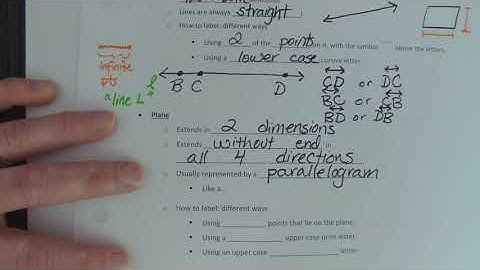 Lines are always straight!
How to label: different ways
Using 2 of the points on it, with the symbol above the letters.
Using a lower case cursive letter.
infinite pts
a line L
B C D
CD or DC
BC or CB
BD or DB
Plane
Extends in 2 dimensions
Extends without end in
all 4 directions
Usually represented by a parallelogram
Like a..
How to label: different ways
Using ____________ points that lie on the plane.
Using a ____________ upper case print letter.
Using an upper case ____________ letter.